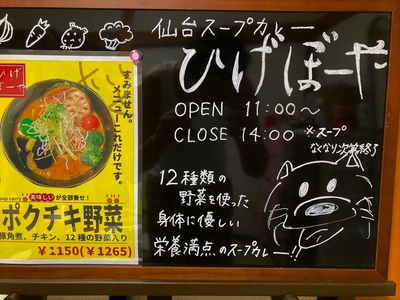 仙台スープカレー
ひげぼーや
OPEN 11:00～
CLOSE 14:00 ※スープ
なくなり次第終了
12種類の
野菜を使った
身体に優しい
栄養満点のスープカレー!!
ひげ
ぼーや
すみません。
メニューこれだけです。
美味しいが全部乗せ!
ポクチキ野菜
豚角煮、チキン、12種の野菜入り
¥1150(¥1265)